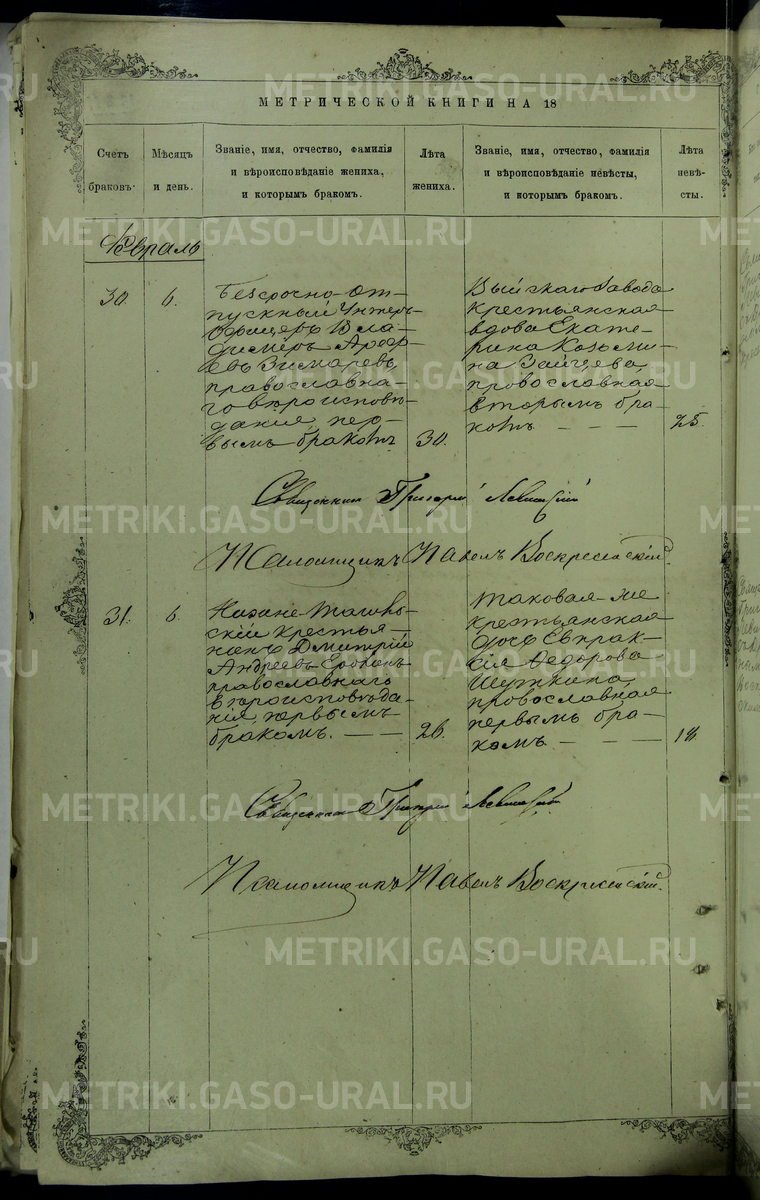 МЕТРИЧЕСКОЙ КНИГИ НА 18
Счетъ браковъ.
Мѣсяцъ и день.
Званіе, имя, отчество, фамилія и вѣроисповѣданіе жениха, и которымъ бракомъ.
Лѣта жениха.
Званіе, имя, отчество, фамилія и вѣроисповѣданіе невѣсты, и которымъ бракомъ.
Лѣта невѣсты.
Февраль
30
6.
Безсрочно-от-
пускный Унтеръ
Офицеръ Вла-
димиръ Ареф-
евъ Зимаревъ,
православна-
го вѣроисповѣ-
данія, пер-
вымъ бракомъ
30.
Выйскаго Завода
крестьянская
вдова Екате-
рина Козьми-
на Зайцева,
православная
вторымъ бра-
комъ
25.
Священникъ Григорій Левитскій
Псаломщикъ Павелъ Воскресенскій.
31.
6.
Нижне-Тагиль-
скій крестья-
нинъ Дмитрій
Андреевъ
православнаго
вѣроисповѣда-
нія, первымъ
бракомъ.
26.
таковая-же
крестьянская
дочь Евпрак-
сия Федорова
православная
первымъ бра-
комъ.
18
Священникъ Григорій Левитскій
Псаломщикъ Павелъ Воскресенскій.
METRIKI.GASO-URAL.RU